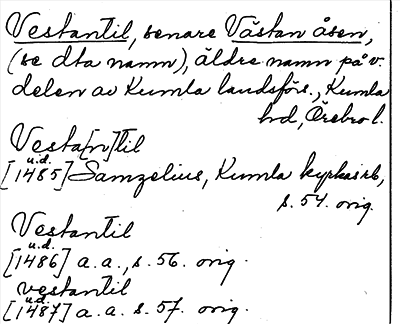 Vestantil, senare Västan åsen,
(se dta namn), äldre namn på v.
delen av Kumla landsförs., Kumla
hd, Örebro l.
Vesta[n]til
u.d.
[1485] Samzelius, Kumla kyrkas rb,
s. 54. orig.
Vestantil
u.d.
[1486] a.a., s. 56. orig.
vestantil
u.d.
[1487] a.a. s. 57. orig.